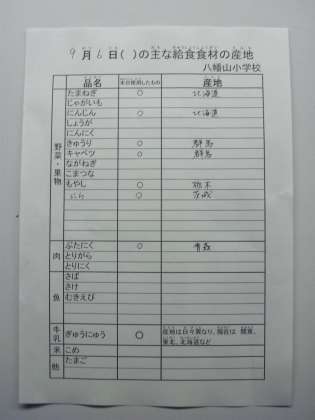 9月6日( )の主な給食食材の産地
八幡山小学校
品名 本日使用したもの 産地
野菜・果物
たまねぎ ○ 北海道
じゃがいも
にんじん ○ 北海道
しょうが
にんにく
きゅうり ○ 群馬
キャベツ ○ 群馬
ながねぎ
こまつな
もやし ○ 栃木
にら ○ 茨城
肉
ぶたにく ○ 青森
とりがら
とりにく
魚
さば
さけ
むきえび
牛乳 ぎゅうにゅう ○ 産地は日々異なり、
東北、北海道など
米 こめ
他 たまご